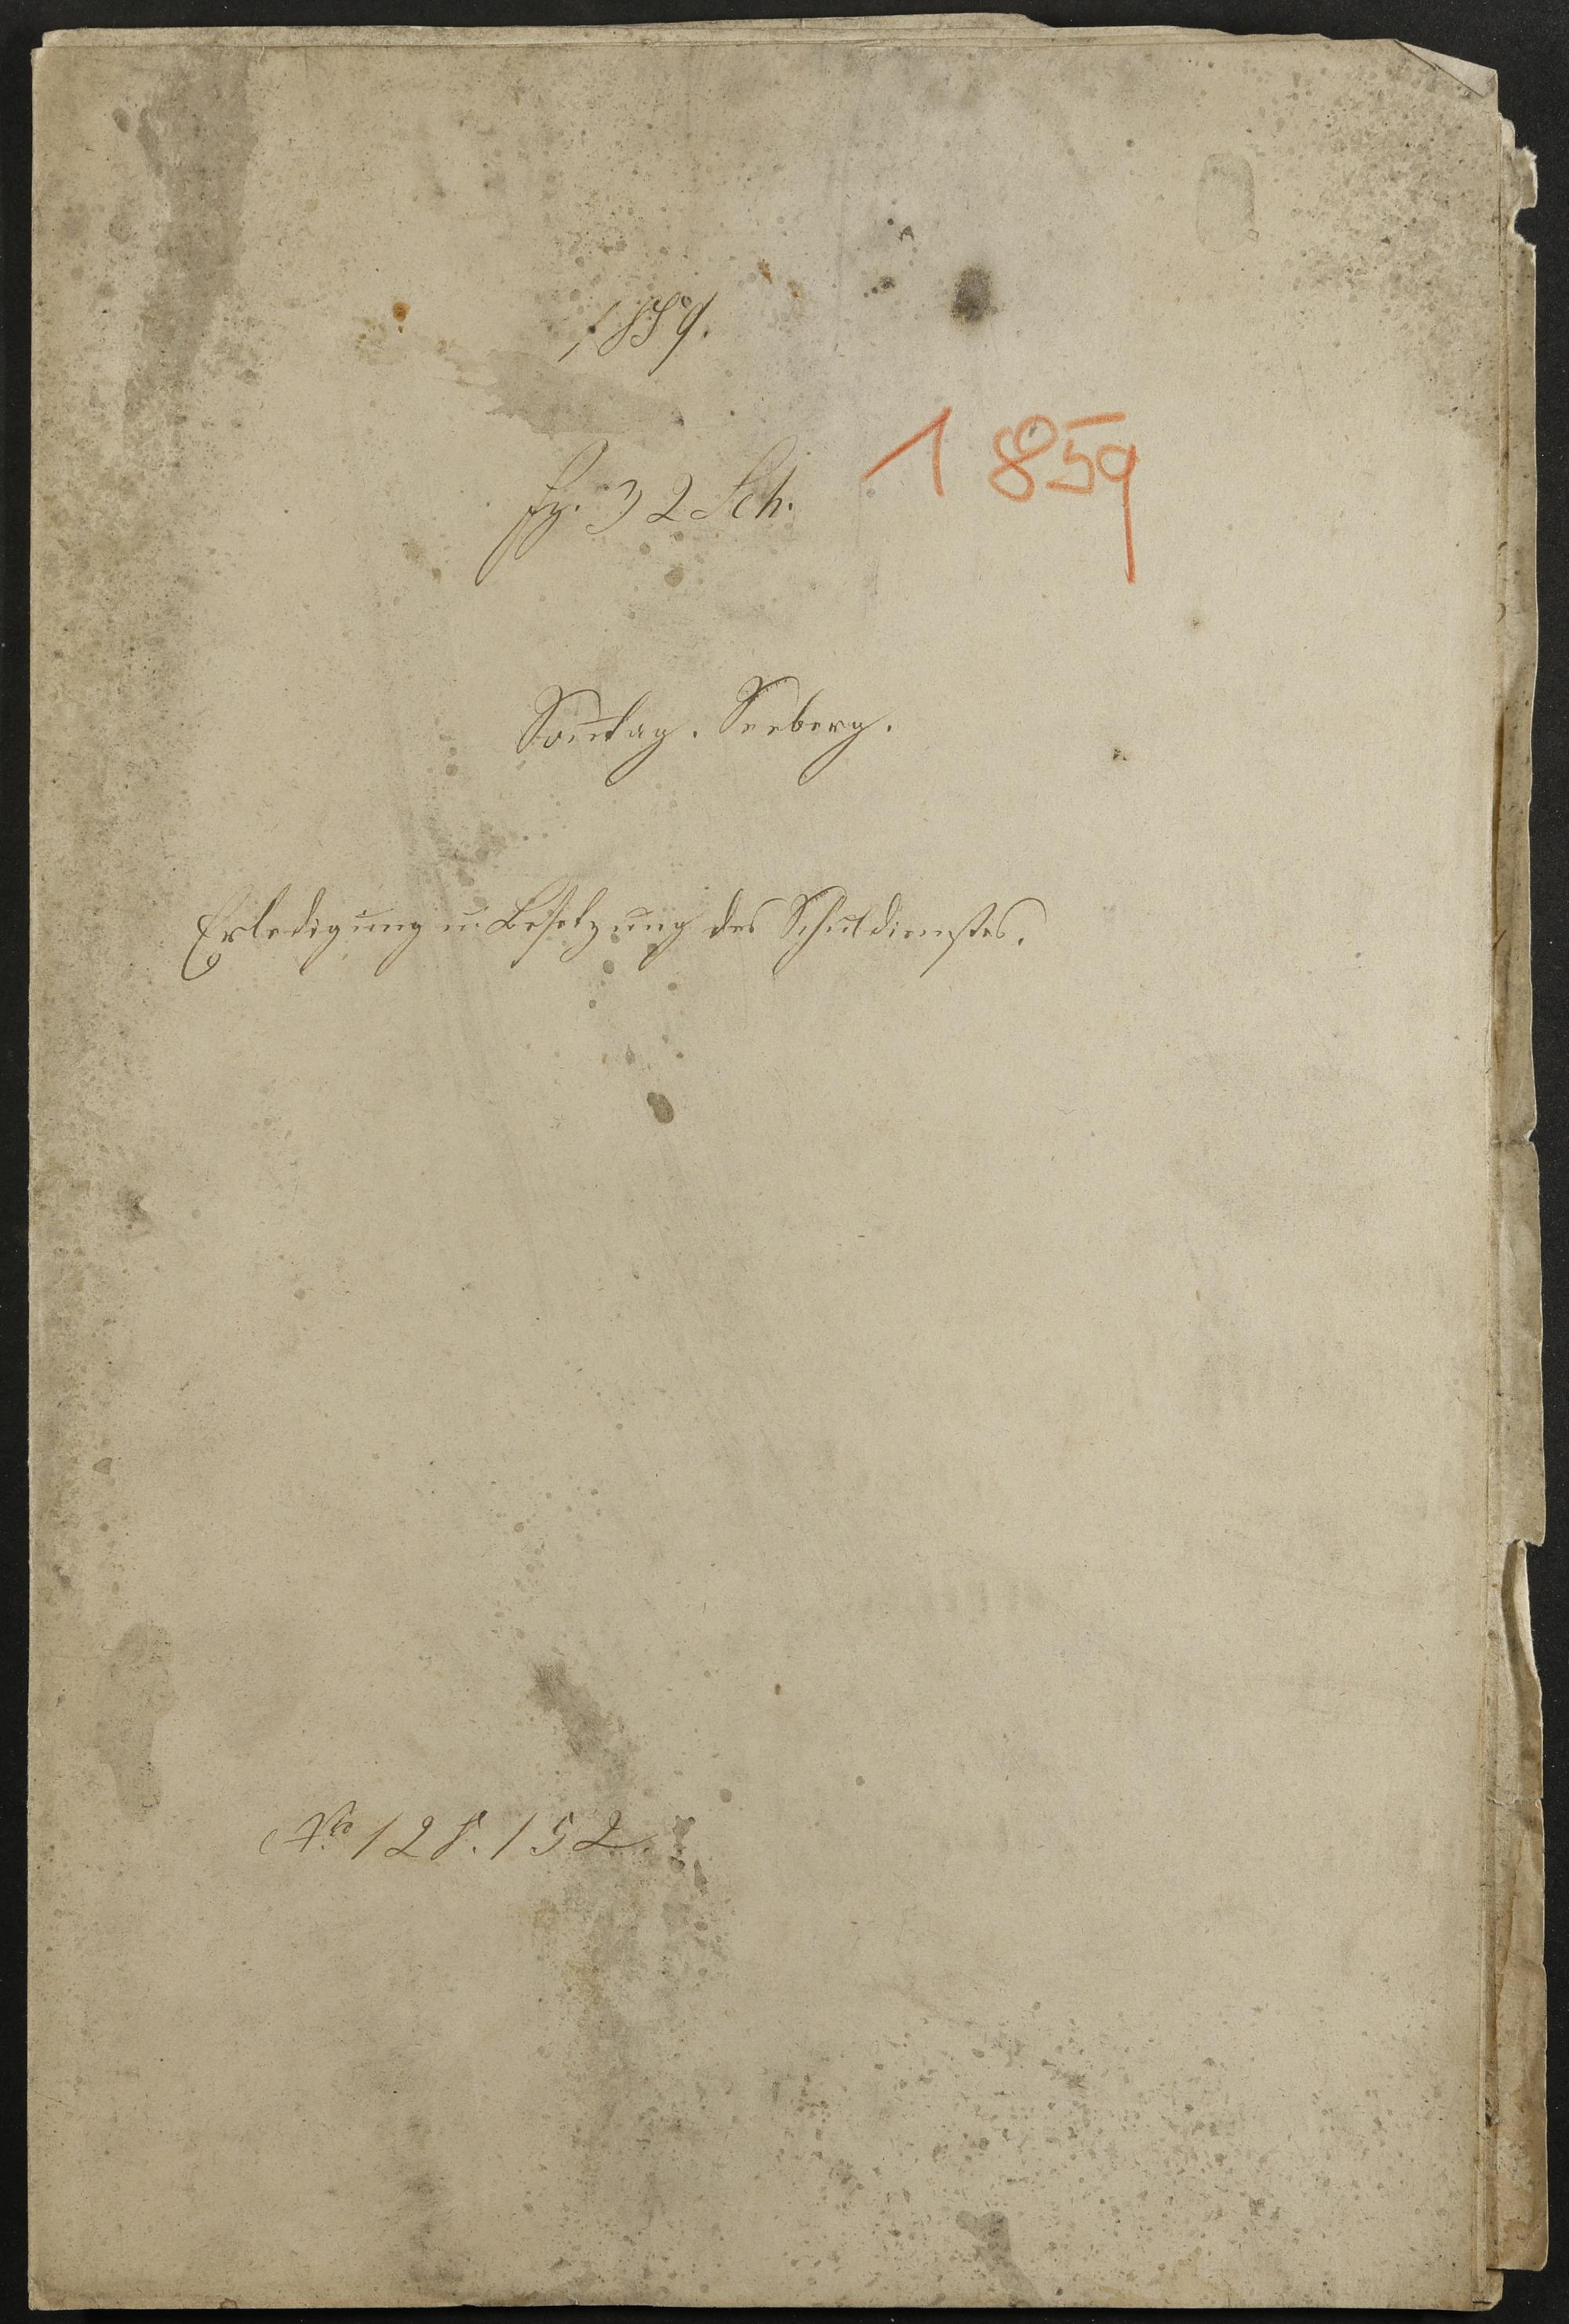 1859.
1859
fz. 32 Sch.
Sonntag. Seeberg.
Erledigung u. Besetzung des Schuldienstes.
No 128. 152.